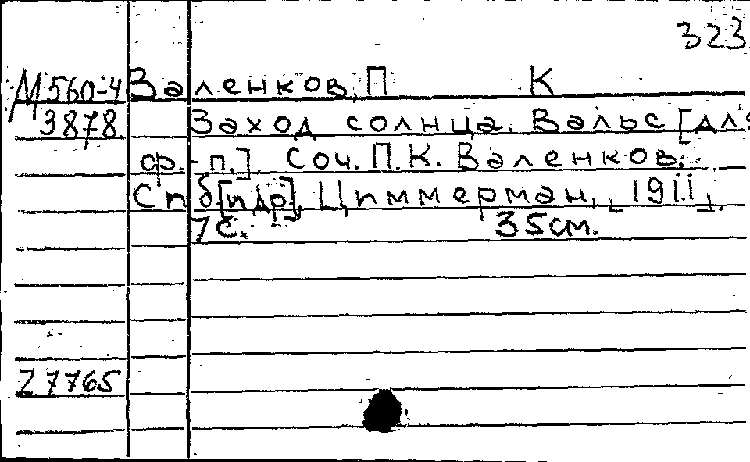 323
М560-4 Валенков, П К
3878 Заход солнца. Вальс [для
ф.-п.]. Соч. П.К. Валенков.
Спб [и др], Циммерман, [1911].
7с. 35см.
Z7765